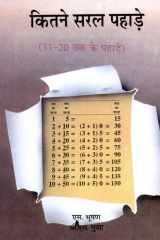 कितने सरल पहाड़े
(11-20 तक के पहाड़े)
1 5 = 15
2 + 10 = (2+1) 0 = 30
3 + 15 = (3+1) 5 = 45
4 + 20 = (4+2) 0 = 60
5 + 25 = (5+2) 5 = 75
6 + 30 = (6+3) 0 = 90
7 + 35 = (7+3) 5 = 105
8 + 40 = (8+4) 0 = 120
9 + 45 = (9+4) 5 = 135
10 + 50 = (10+5) 0 = 150
एस. भूषण
गुप्ता